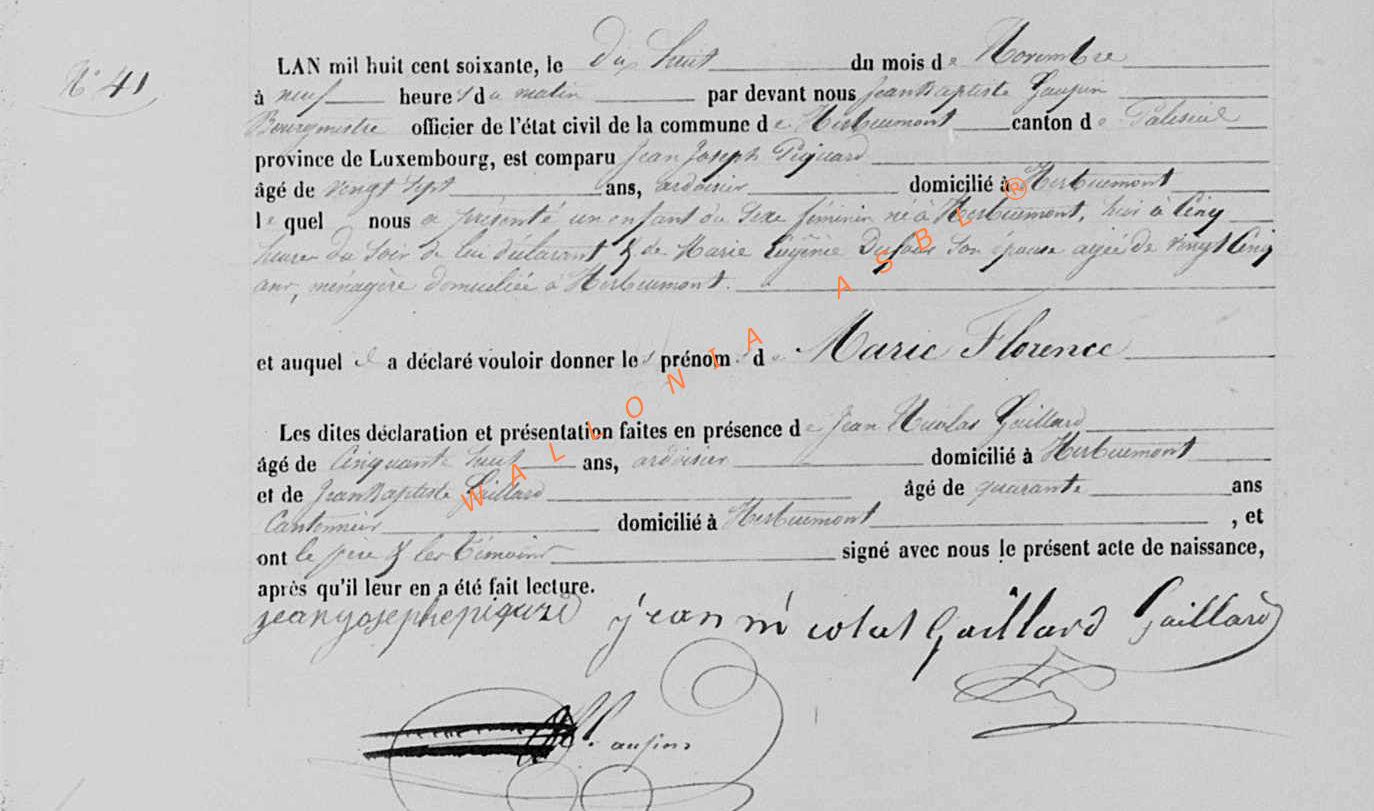 N° 41
LAN mil huit cent soixante, le dix huit du mois de Novembre
à neuf heures du matin par devant nous Jean Baptiste Gaupin
Bourgmestre officier de l'état civil de la commune de Herbeumont canton de Paliseul
province de Luxembourg, est comparu Jean Joseph Piquard
âgé de vingt sept ans, ardoisier domicilié à Herbeumont
le quel nous a présenté un enfant du sexe féminin né à Herbeumont, hier à cinq
heures du soir de lui déclarant & de Marie Eugénie son épouse agée de vingt cinq
ans, ménagère domiciliée à Herbeumont.
et auquel il a déclaré vouloir donner les prénoms de Marie Florence
Les dites déclaration et présentation faites en présence de Jean Nicolas Gaillard
âgé de cinquante huit ans, ardoisier domicilié à Herbeumont
et de Jean Baptiste Gaillard âgé de quarante ans
Cantonnier domicilié à Herbeumont, et
ont le père & les témoins signé avec nous le présent acte de naissance,
après qu'il leur en a été fait lecture.
jean nicolas Gaillard Gaillard
WALLONIA ASBL ®